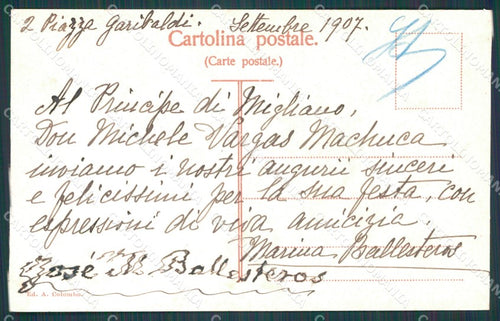 2 Piazza Garibaldi. Settembre 1907.
Cartolina postale.
(Carte postale.)
Al Principe di Migliano,
Don Michele Vargas Machuca
inviamo i nostri augurii sinceri
e felicissimi per la sua festa, con
espressioni di viva amicizia.
Marina Ballesteros
José M. Ballesteros
Ed. A. Colombo.